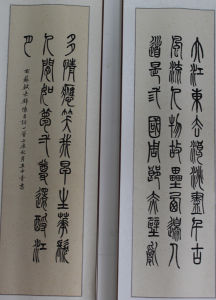 大江東去浪淘盡千古
風流人物故壘西邊人
道是弎國周郎赤壁亂
多情應笑我早生華髮
人間如夢弌尊還酹江
月